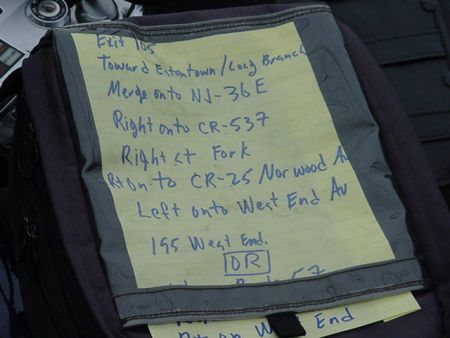 Exit 105
Toward Eatontown/Long Branch
Merge onto NJ-36 E
Right onto CR-537
Right at Fork
Rt onto CR-25 Norwood Av
Left onto West End Av
195 West End.
OR
57
West End